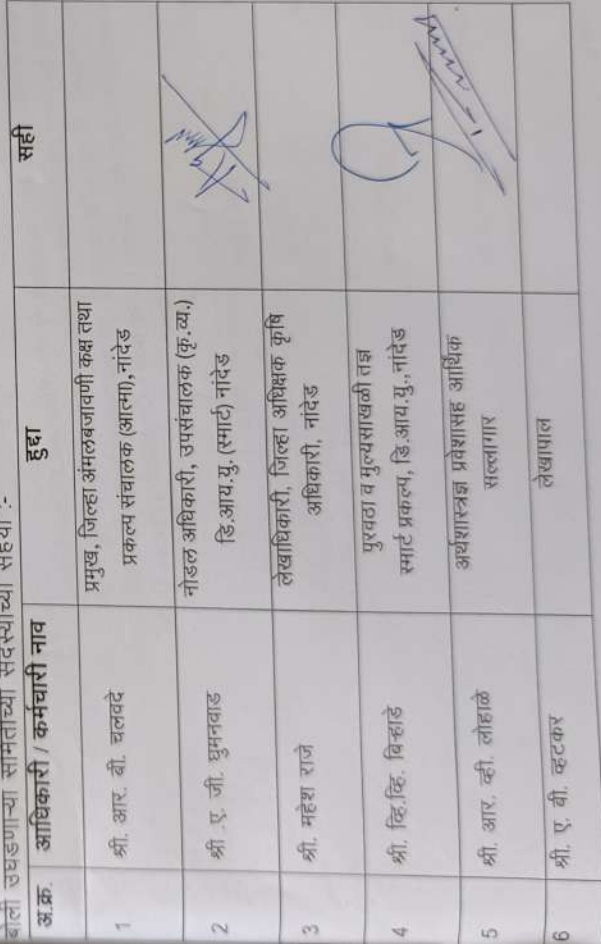 बोली उघडणाऱ्या समितीच्या सदस्यांच्या सह्या :-
अ.क्र. अधिकारी / कर्मचारी नाव हुद्दा सही
1 श्री. आर. बी. चलवदे प्रमुख, जिल्हा अंमलबजावणी कक्ष तथा
प्रकल्प संचालक (आत्मा), नांदेड
2 श्री . ए. जी. घुमनवाड नोडल अधिकारी, उपसंचालक (कृ.व्य.)
डि.आय.यु. (स्मार्ट) नांदेड
3 श्री. महेश राजे लेखाधिकारी, जिल्हा अधिक्षक कृषि
अधिकारी, नांदेड
4 श्री. व्हि.व्हि. बिऱ्हाडे पुरवठा व मुल्यसाखळी तज्ञ
स्मार्ट प्रकल्प, डि.आय.यु.,नांदेड
5 श्री. आर. व्ही. लोहाळे अर्थशास्त्रज्ञ प्रवेशासह आर्थिक
सल्लागार
6 श्री. ए. बी. व्हटकर लेखापाल